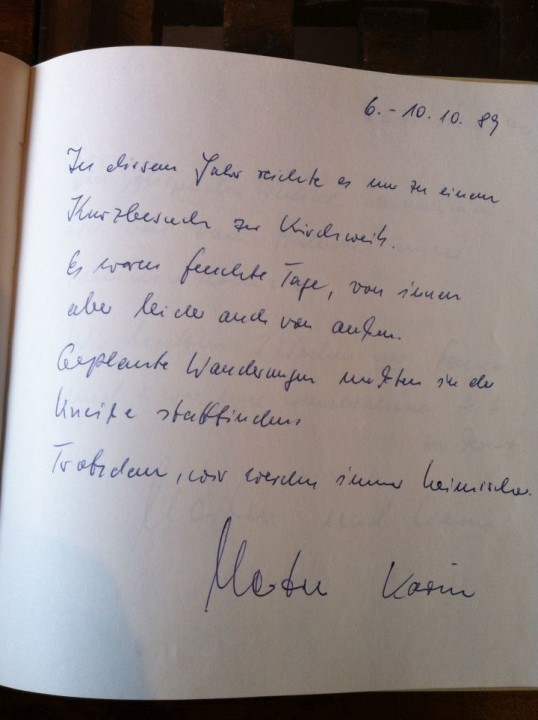 6.-10.10.89
In diesem Jahr reichte es nur zu einem
Kurzbesuch zur Kirchweih.
Es waren feuchte Tage, von innen
aber leider auch von außen.
Geplante Wanderungen mußten in der
Kneipe stattfinden,
Trotzdem, wir werden immer heimischer.
Martin Karin